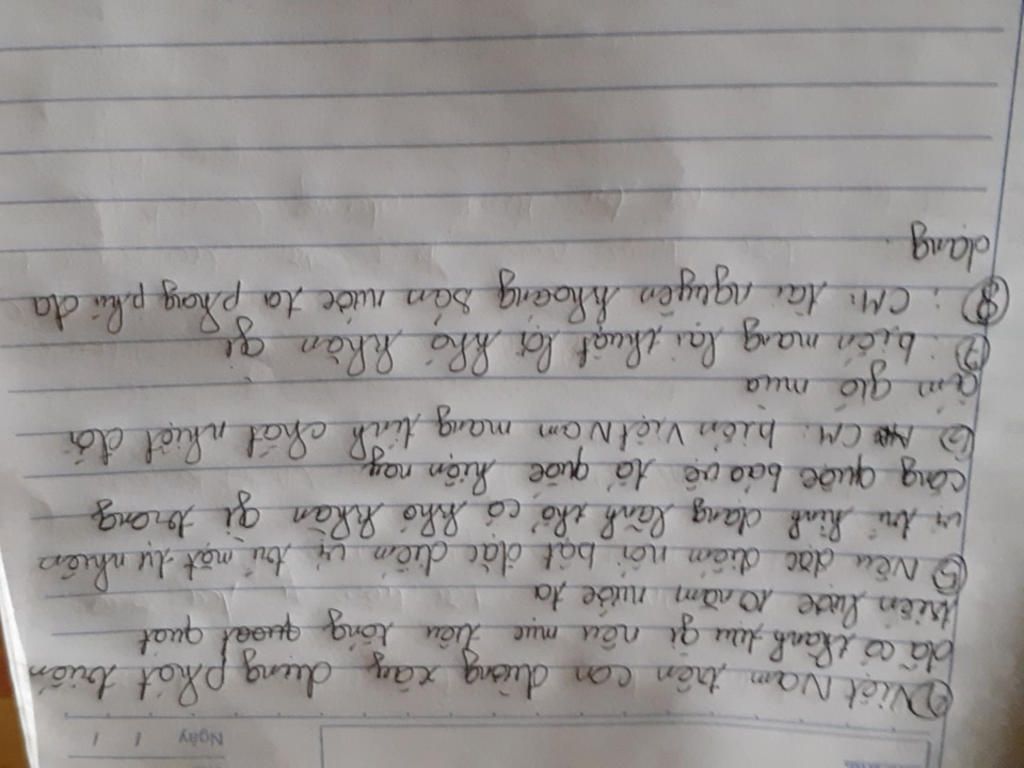 Ngày / /
④ Việt Nam trên con đường xây dựng phát triển
đã có thành tựu gì nêu mục tiêu tổng quát
triến lược 10 năm nước ta
⑤ Nêu đặc điểm nổi bật đặc điểm vị trí mặt tự nhiên
vị trí hình dạng lãnh thổ có khó khăn gì trong
công quốc bảo vệ tổ quốc hiện nay
⑥ CM: biển Việt Nam mang tính chất nhiệt đới
ẩm gió mùa
⑦: biển mang lại thuật lợi khó khăn gì
⑧: CM: tài nguyên khoáng sản nước ta phong phú đa
dạng.